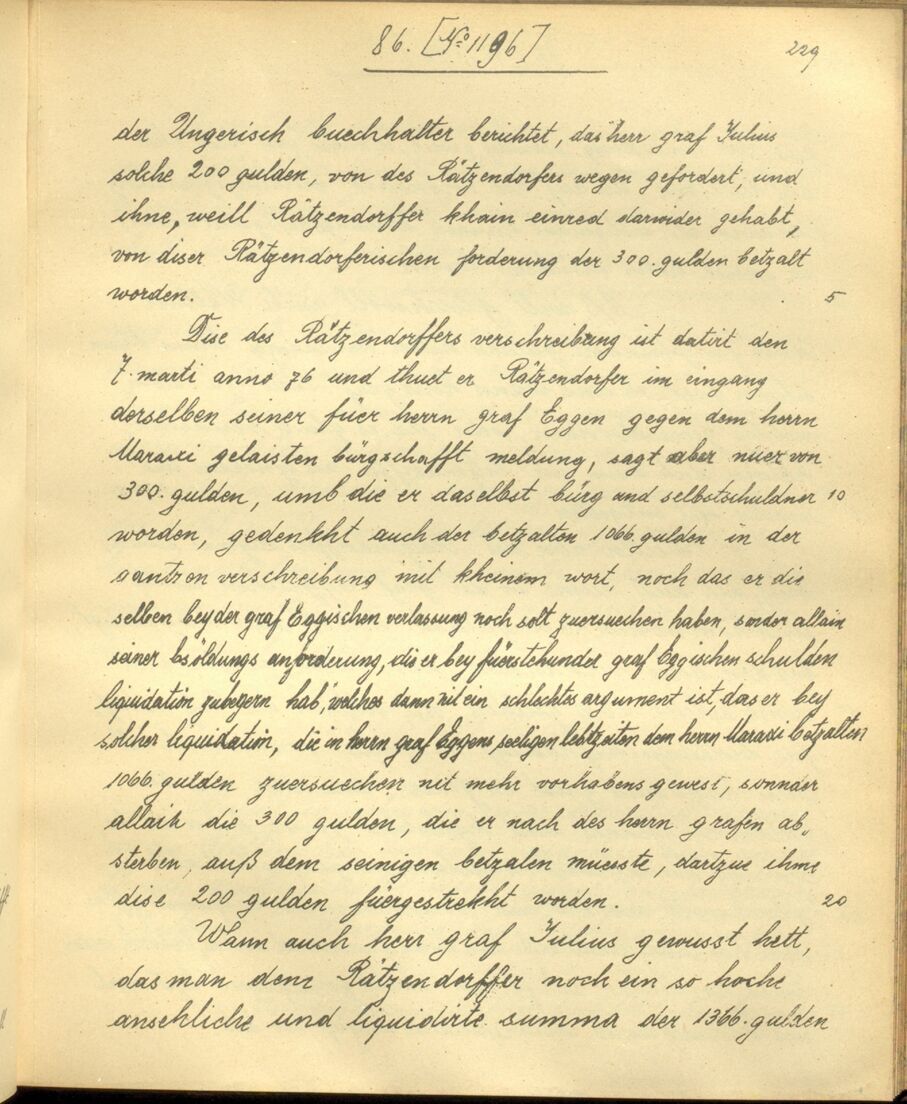 86. [No 1196]
229
der Ungerisch buechhalter berichtet, das herr graf Julius
solche 200 gulden, von des Rätzendorfers wegen gefordert, und
ihne, weill Rätzendorffer khain einred darwider gehabt,
von diser Rätzendorferischen forderung der 300. gulden betzalt
worden. 5
Dise des Rätzendorffers verschreibung ist datirt den
7. marti anno 76 und thuet er Rätzendorfer im eingang
derselben seiner füer herrn graf Eggen gegen dem herrn
Maraxi gelaisten bürgschafft meldung, sagt aber nuer von
300. gulden, umb die er daselbst bürg und selbstschuldner 10
worden, gedenkht auch der betzalten 1066. gulden in der
gantzen verschreibung mit kheinem wort, noch das er die
selben bey der graf Eggischen verlassung noch solt zuersuechen haben, sonder allain
seiner bsöldungs anforderung, die er bey fürstehunder graf Eggischen schulden
liquidation zubegern hab, welches dann nit ein schlechtes argument ist, das er bey
solcher liquidation, die in herrn graf Eggens seeligen lebtzeiten dem herrn Maraxi betzalten
1066. gulden zuersuechen nit mehr vorhabens gewest, sonnder
allain die 300 gulden, die er nach des herrn grafen ab„
sterben, auß dem seinigen betzalen müesste, dartzue ihme
dise 200 gulden füergestrekht worden. 20
Wann auch herr graf Julius gewusst hett,
das man dem Rätzendorffer noch ein so hoche
ansehliche und liquidirte summa der 1366. gulden